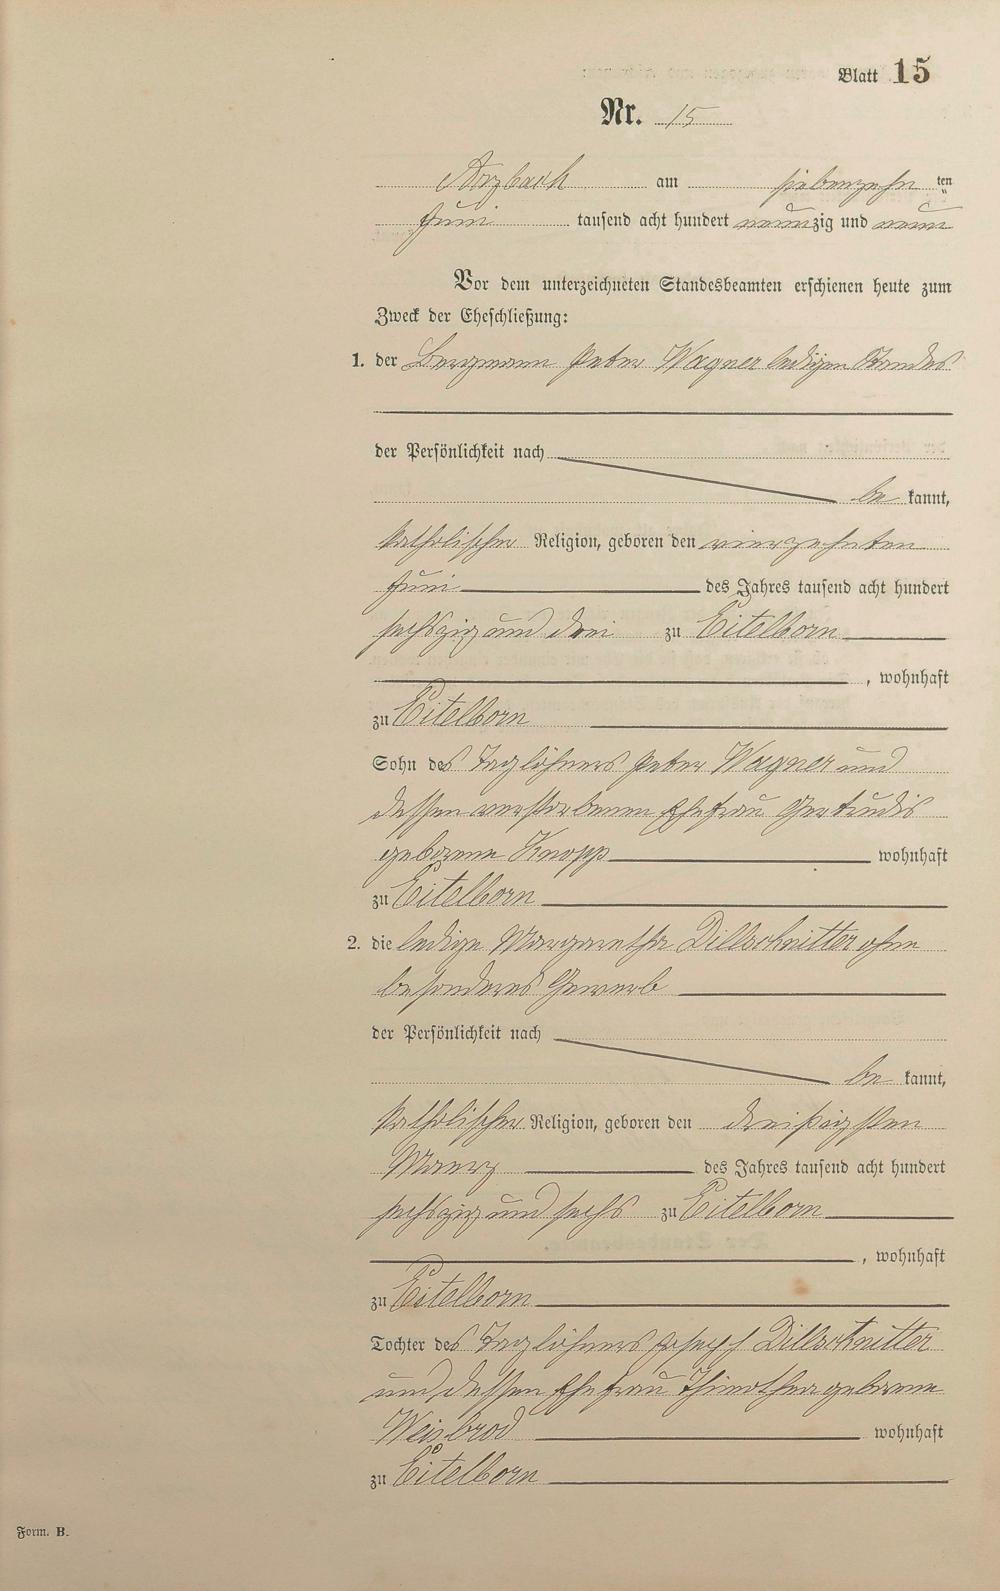 Blatt 15
Nr. 15
Arzbach am siebenzehn ten
Juni tausend acht hundert neunzig und neun
Vor dem unterzeichneten Standesbeamten erschienen heute zum
Zweck der Eheschließung:
1. der Bergmann Peter Wagner ledigen Standes
der Persönlichkeit nach
be kannt,
katholischer Religion, geboren den vierzehnten
Juni des Jahres tausend acht hundert
sechszig und drei zu Eitelborn
, wohnhaft
zu Eitelborn
Sohn des Taglöhners Peter Wagner und
dessen verstorbenen Ehefrau Gertrudis
geborene Knopp wohnhaft
zu Eitelborn
2. die ledige Margaretha Dillschnitter ohne
besonderes Gewerb
der Persönlichkeit nach
be kannt,
katholischer Religion, geboren den dreißigsten
Maerz des Jahres tausend acht hundert
sechszig und sechs zu Eitelborn
, wohnhaft
zu Eitelborn
Tochter des Taglöhners Joseph Dillschnitter
und dessen Ehefrau Thimothea geborene
Weisbrod wohnhaft
zu Eitelborn
Form. B.